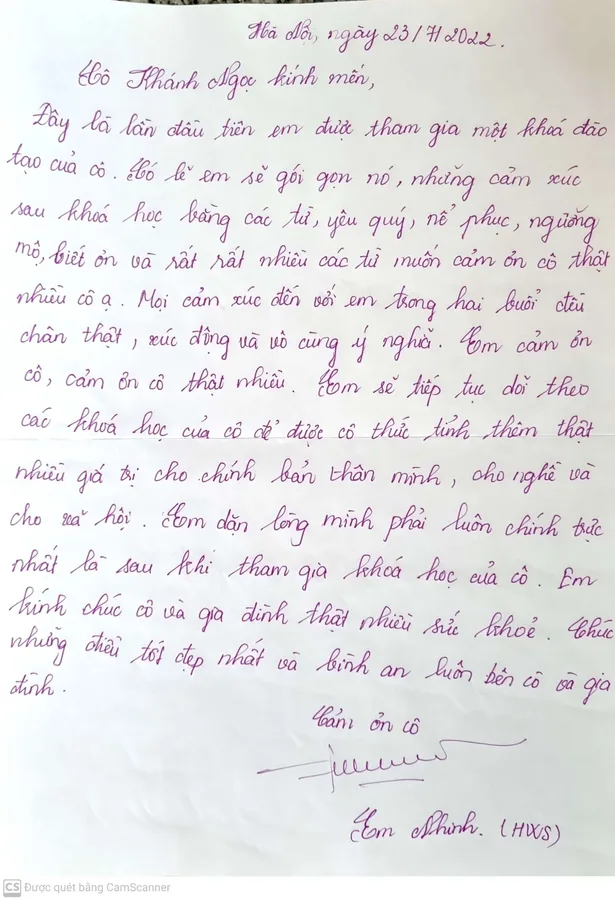 Hà Nội, ngày 23/7/2022.
Cô Khánh Ngọc kính mến,
Đây là lần đầu tiên em được tham gia một khoá đào
tạo của cô. Có lẽ em sẽ gói gọn nó, những cảm xúc
sau khoá học bằng các từ, yêu quý, nể phục, ngưỡng
mộ, biết ơn và rất rất nhiều các từ muốn cảm ơn cô thật
nhiều cô ạ. Mọi cảm xúc đến với em trong hai buổi đều
chân thật, xúc động và vô cùng ý nghĩa. Em cảm ơn
cô, cảm ơn cô thật nhiều. Em sẽ tiếp tục dõi theo
các khoá học của cô để được cô thức tỉnh thêm thật
nhiều giá trị cho chính bản thân mình, cho nghề và
cho xã hội. Em dặn lòng mình phải luôn chính trực
nhất là sau khi tham gia khoá học của cô. Em
kính chúc cô và gia đình thật nhiều sức khoẻ. Chúc
những điều tốt đẹp nhất và bình an luôn bên cô và gia
đình.
Cảm ơn cô
Em Nhinh. (HWS)
CS Được quét bằng CamScanner